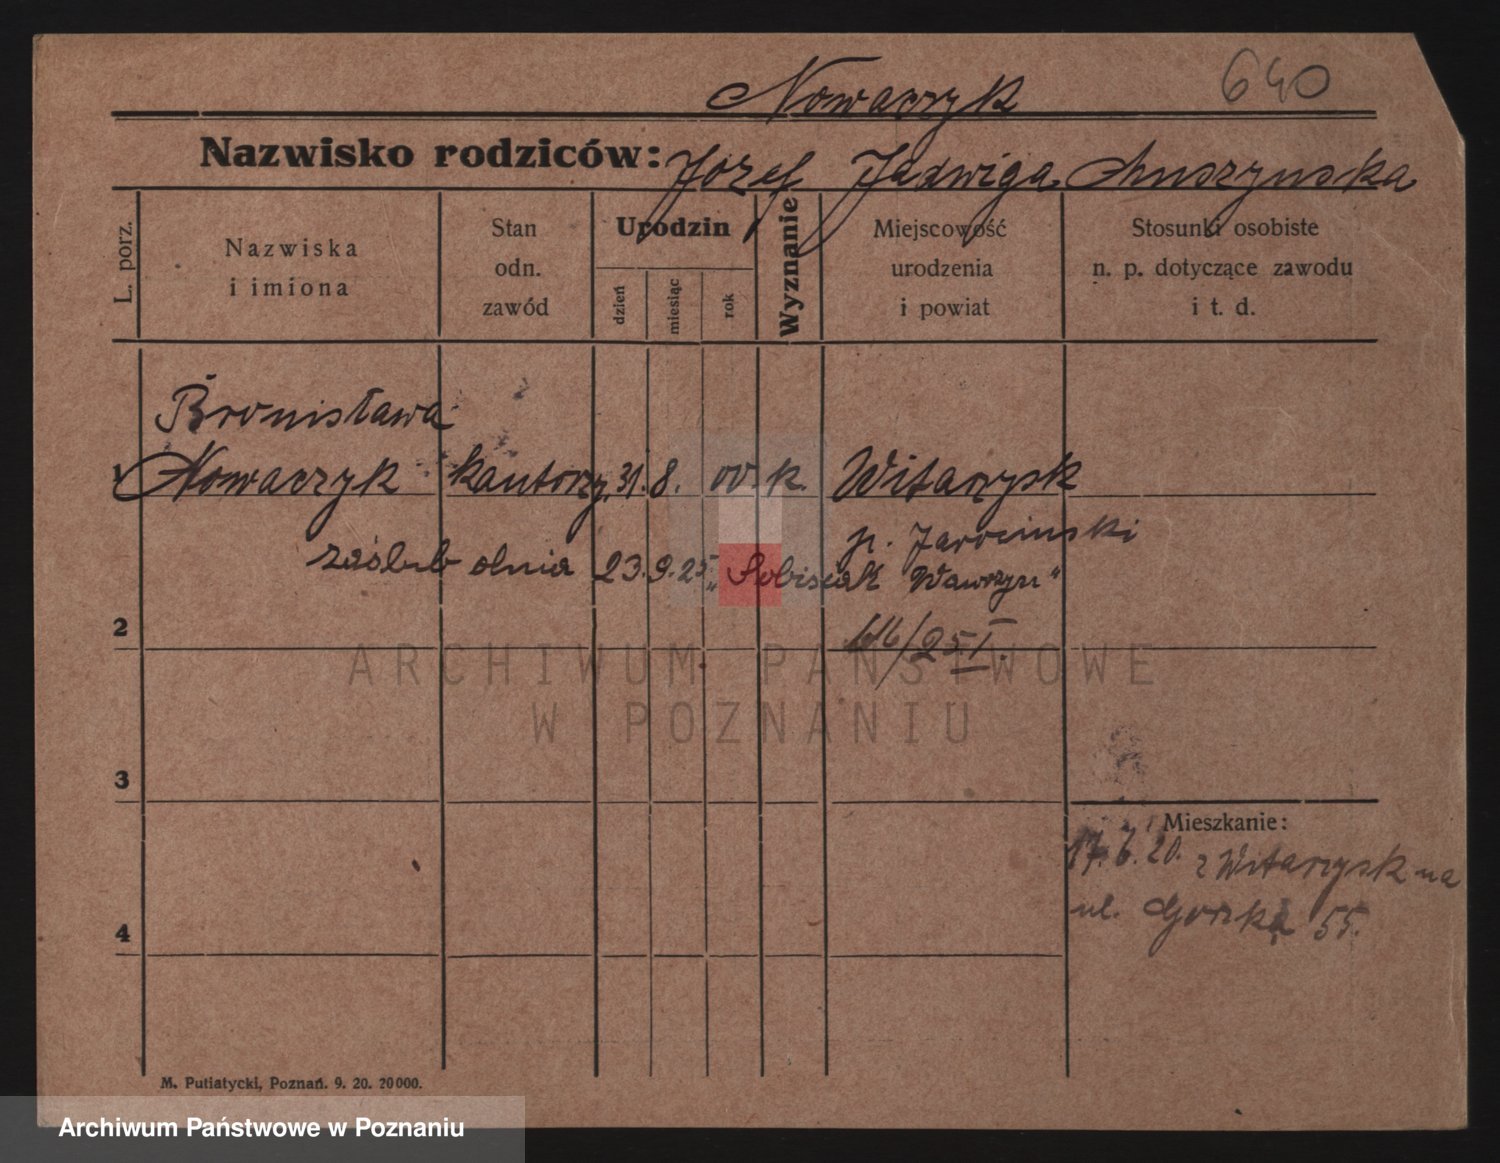 Nowaczyk 640
Nazwisko rodziców: Józef Jadwiga
L. porz.
Nazwiska
i imiona
Stan
odn.
zawód
Urodzin
dzień
miesiąc
rok
Wyznanie
Miejscowość
urodzenia
i powiat
Stosunki osobiste
n. p. dotyczące zawodu
i t. d.
Bronisława
1 Nowaczyk kantorzy. 31. 8. 00. k. Witaszysk
p. Jarociński
zaślub dnia 23. 9. 25 „Sobisiak Wawrzyn“
2
616/25 I.
3
Mieszkanie:
17. 6. 20. z Witaszysk na
ul. 55.
4
M. Putiatycki, Poznań. 9. 20. 20000.
ARCHIWUM PAŃSTWOWE
W POZNANIU
Archiwum Państwowe w Poznaniu